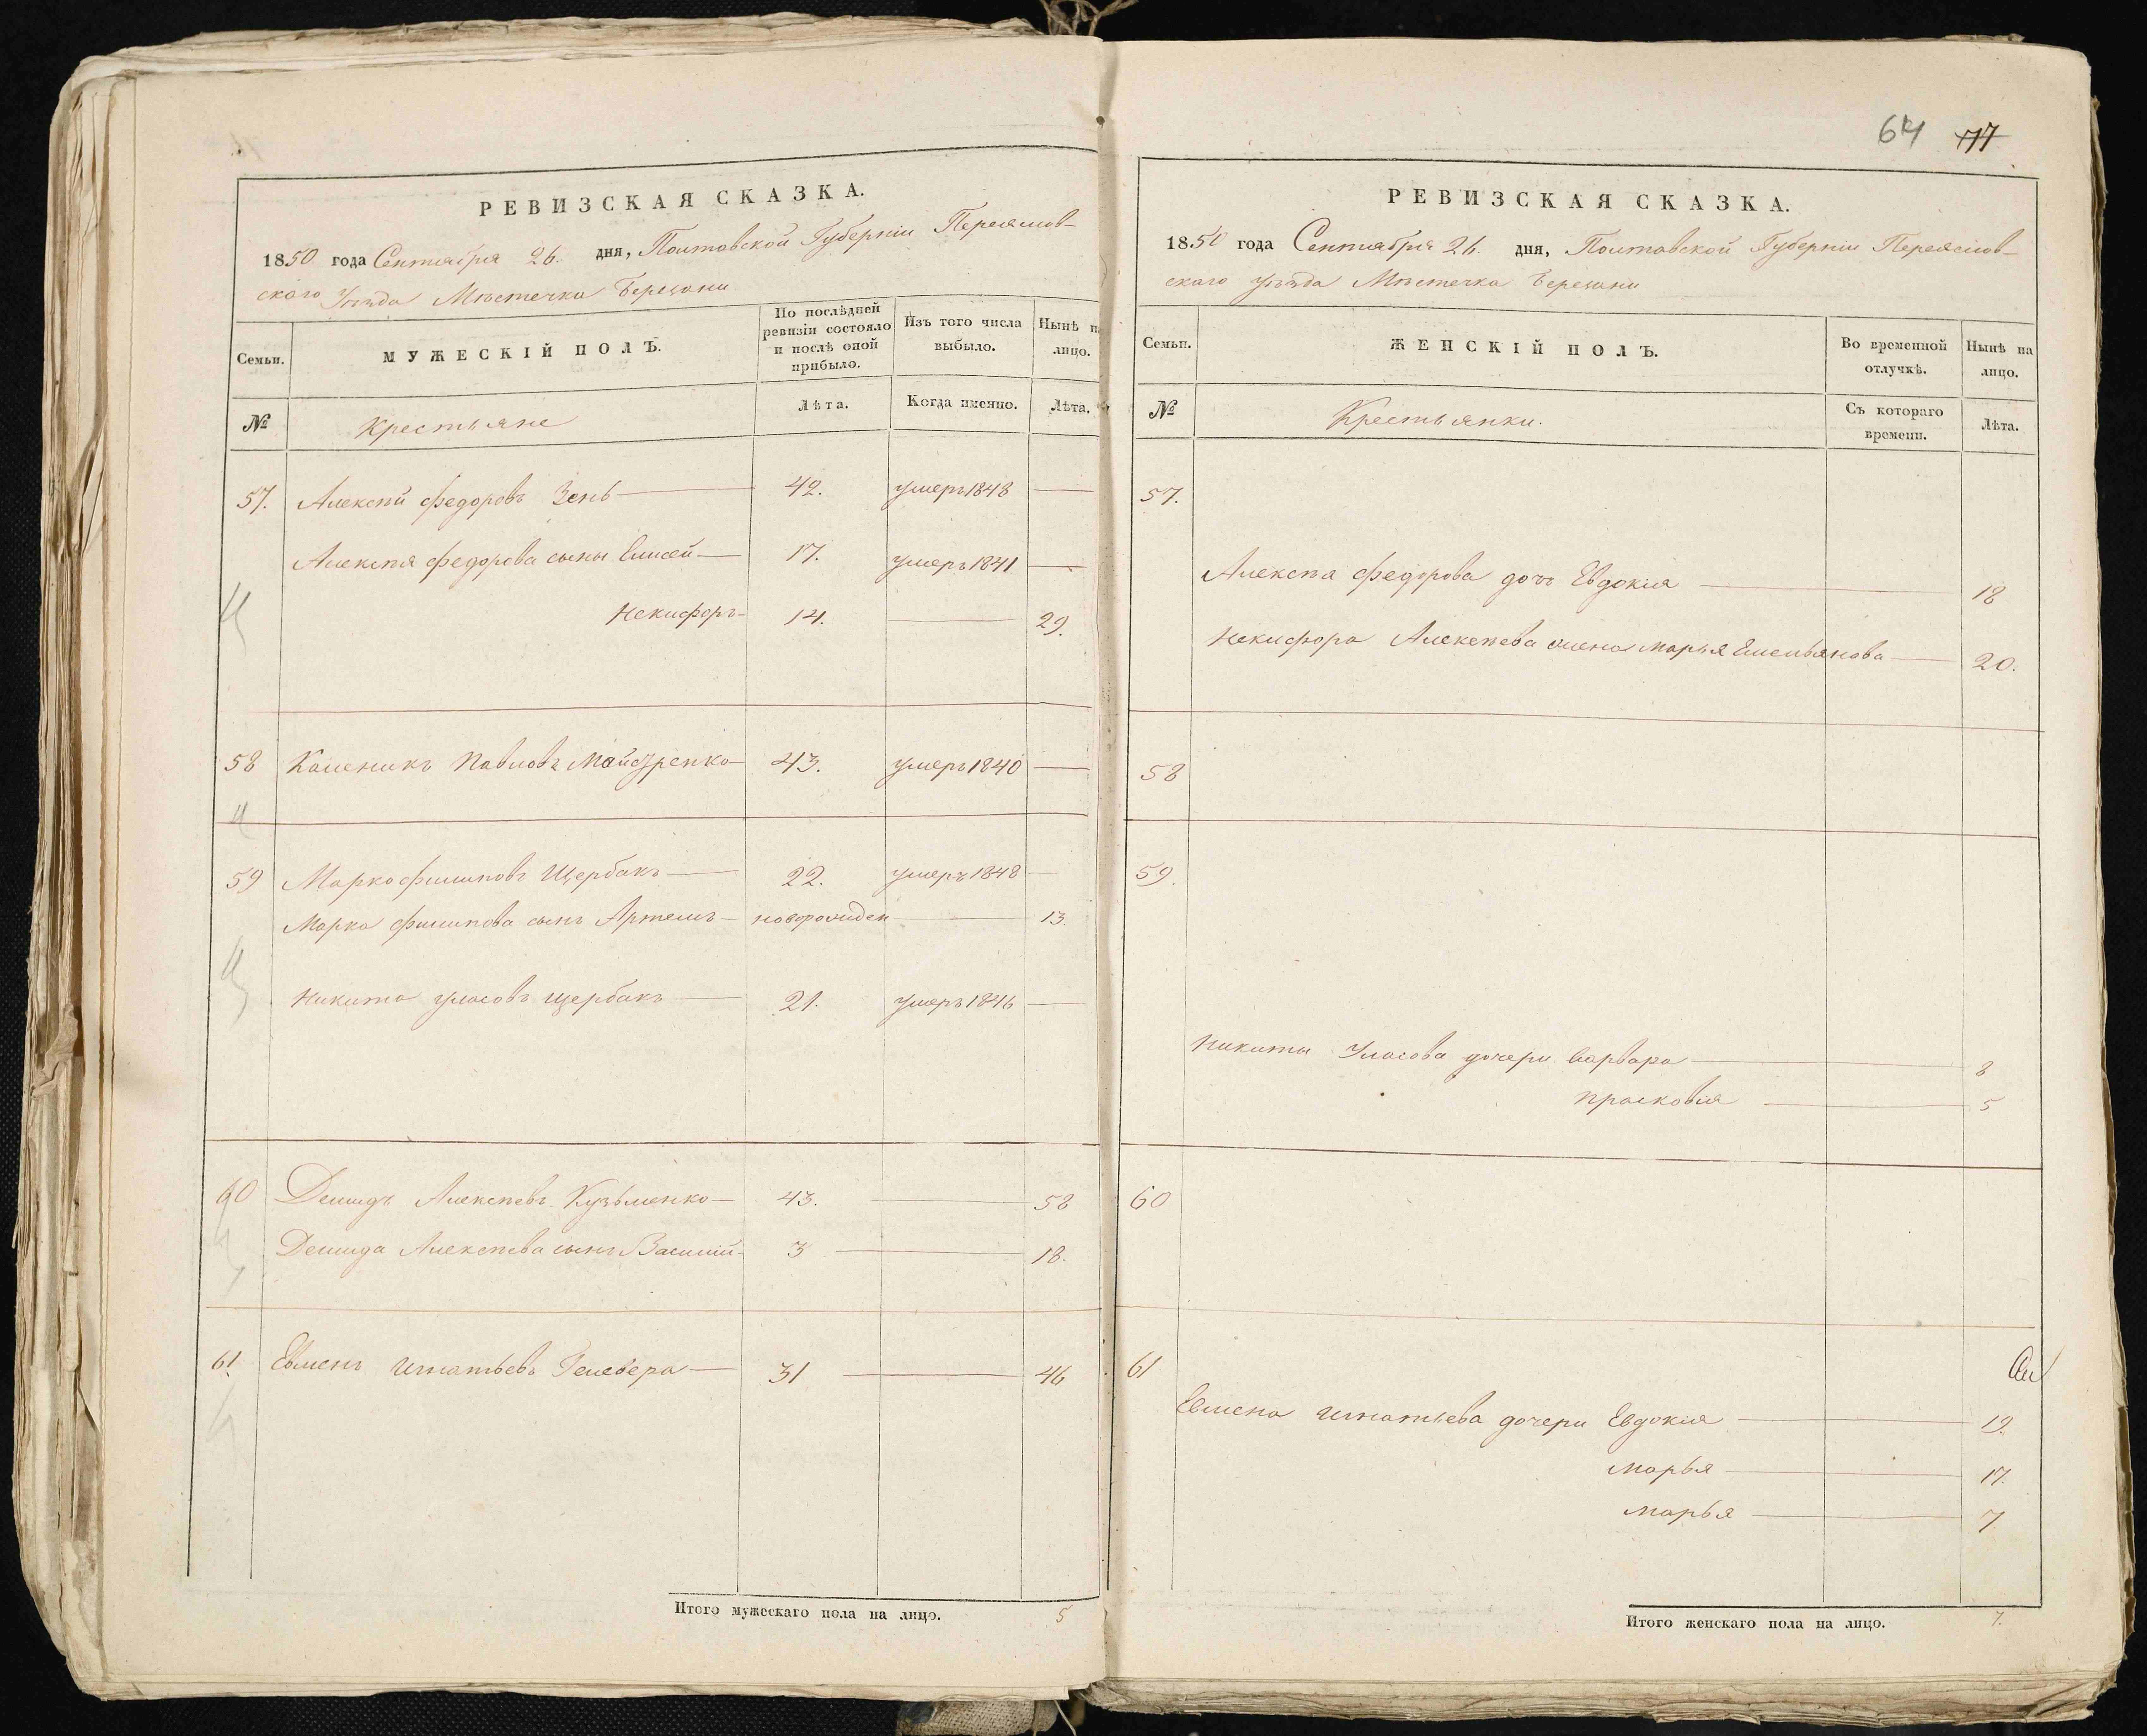 РЕВИЗСКАЯ СКАЗКА.
1850 года Сентября 26. дня, Полтавской Губерніи Переяслов-
скаго Уѣзда Мѣстечка Березани
Семьи. МУЖЕСКІЙ ПОЛЪ. По послѣдней ревизіи состояло и послѣ оной прибыло. Изъ того числа выбыло. Нынѣ на лицо.
№ Крестьяне Лѣта. Когда именно. Лѣта.
57. Алексѣй Федоровъ Зень 42. умеръ 1848
Алексѣя Федорова сыны Елисей 17. умеръ 1841
Некифоръ 14. 29.
58 Каленикъ Павловъ Майдренко 43. умеръ 1840
59 Марко Филиповъ Щербакъ 22. умеръ 1848
Марка Филипова сынъ Артемъ новорожден 13.
Никита Уласовъ Щербакъ 21. умеръ 1846
60 Демидъ Алексѣевъ Кузьменко 43. 58
Демида Алексѣева сынъ Василій 3 18.
61. Евменъ Игнатьевъ Гелевера 31 46
Итого мужескаго пола на лицо. 5
64 77
РЕВИЗСКАЯ СКАЗКА.
1850 года Сентября 26. дня, Полтавской Губерніи Переяслов-
скаго уѣзда Мѣстечка Березани
Семьи. ЖЕНСКІЙ ПОЛЪ. Во временной отлучкѣ. Нынѣ на лицо.
№ Крестьянки. Съ котораго времени. Лѣта.
57.
Алексѣя Федорова дочь Евдокія 18
Некифора Алексѣева жена Марья Емельянова 20.
58
59.
Никиты Уласова дочери Варвара 8
Прасковія 5
60
61
Евмена Игнатьева дочери Евдокія 19.
Марья 17.
Марья 7
Итого женскаго пола на лицо. 7.